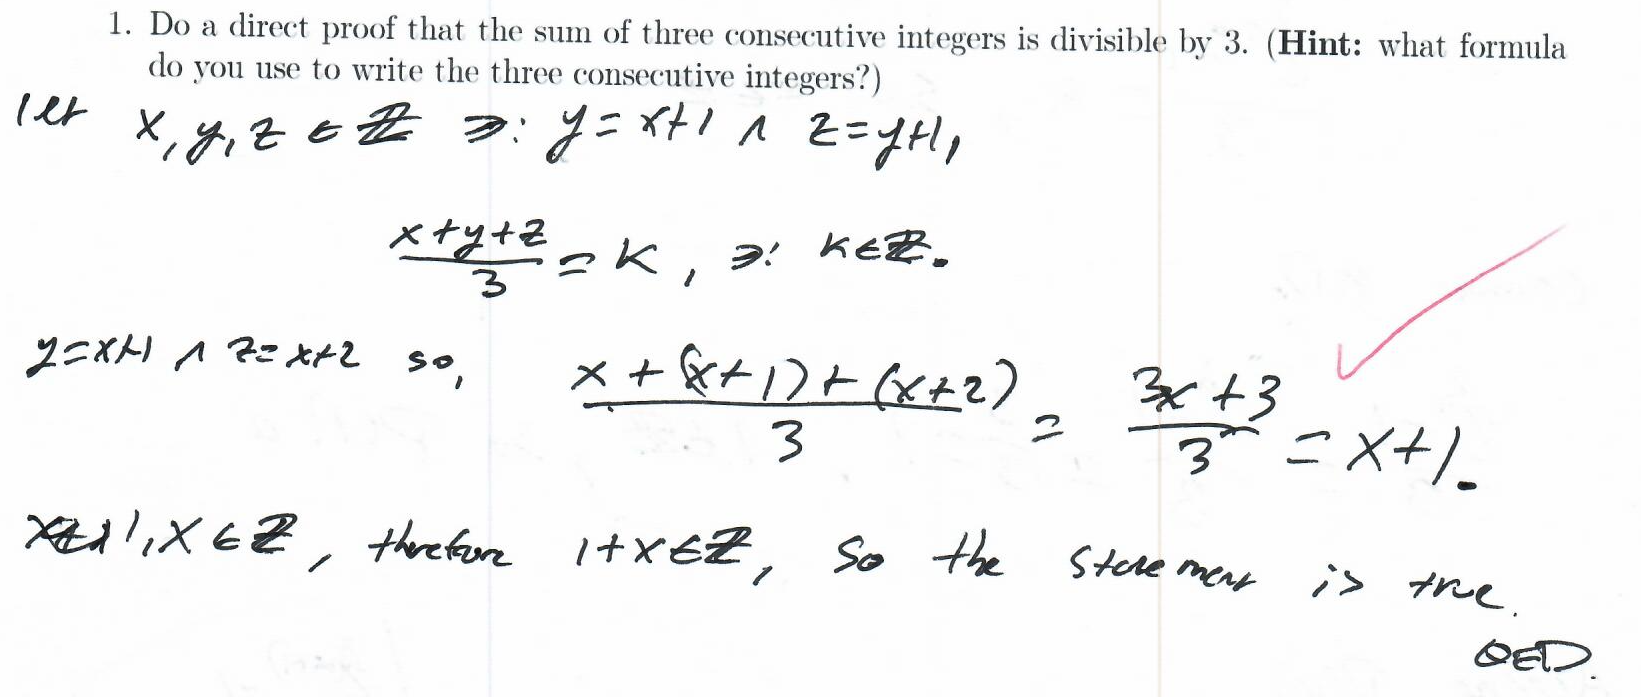 1. Do a direct proof that the sum of three consecutive integers is divisible by 3. (Hint: what formula
do you use to write the three consecutive integers?)
let x, y, z ∈ ℤ ∋: y = x+1 ∧ z = y+1,
(x+y+z)/3 = K, ∋: K∈ℤ.
y=x+1 ∧ z=x+2 so, (x + (x+1) + (x+2))/3 = (3x+3)/3 = x+1.
1, x ∈ ℤ, therefore 1+x∈ℤ, so the statement is true.
QED.